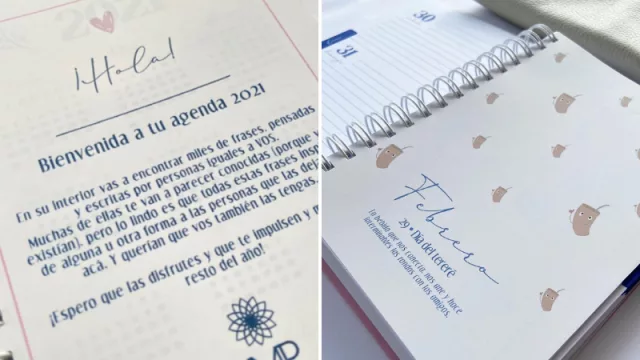 2021
¡Hola!
Bienvenida a tu agenda 2021
En su interior vas a encontrar miles de frases, pensadas
y escritas por personas iguales a vos.
Muchas de ellas te van a parecer conocidas (porque y
existían), pero lo lindo es que todas estas frases insp
de alguna u otra forma a las personas que las deja
acá. Y querían que vos también las tengas
¡Espero que las disfrutes y que te impulsen y
resto del año!
30
31
Febrero
29 • Día del tereré
La bebida que nos conecta, nos une y hace
interminables las rondas con los amigos.